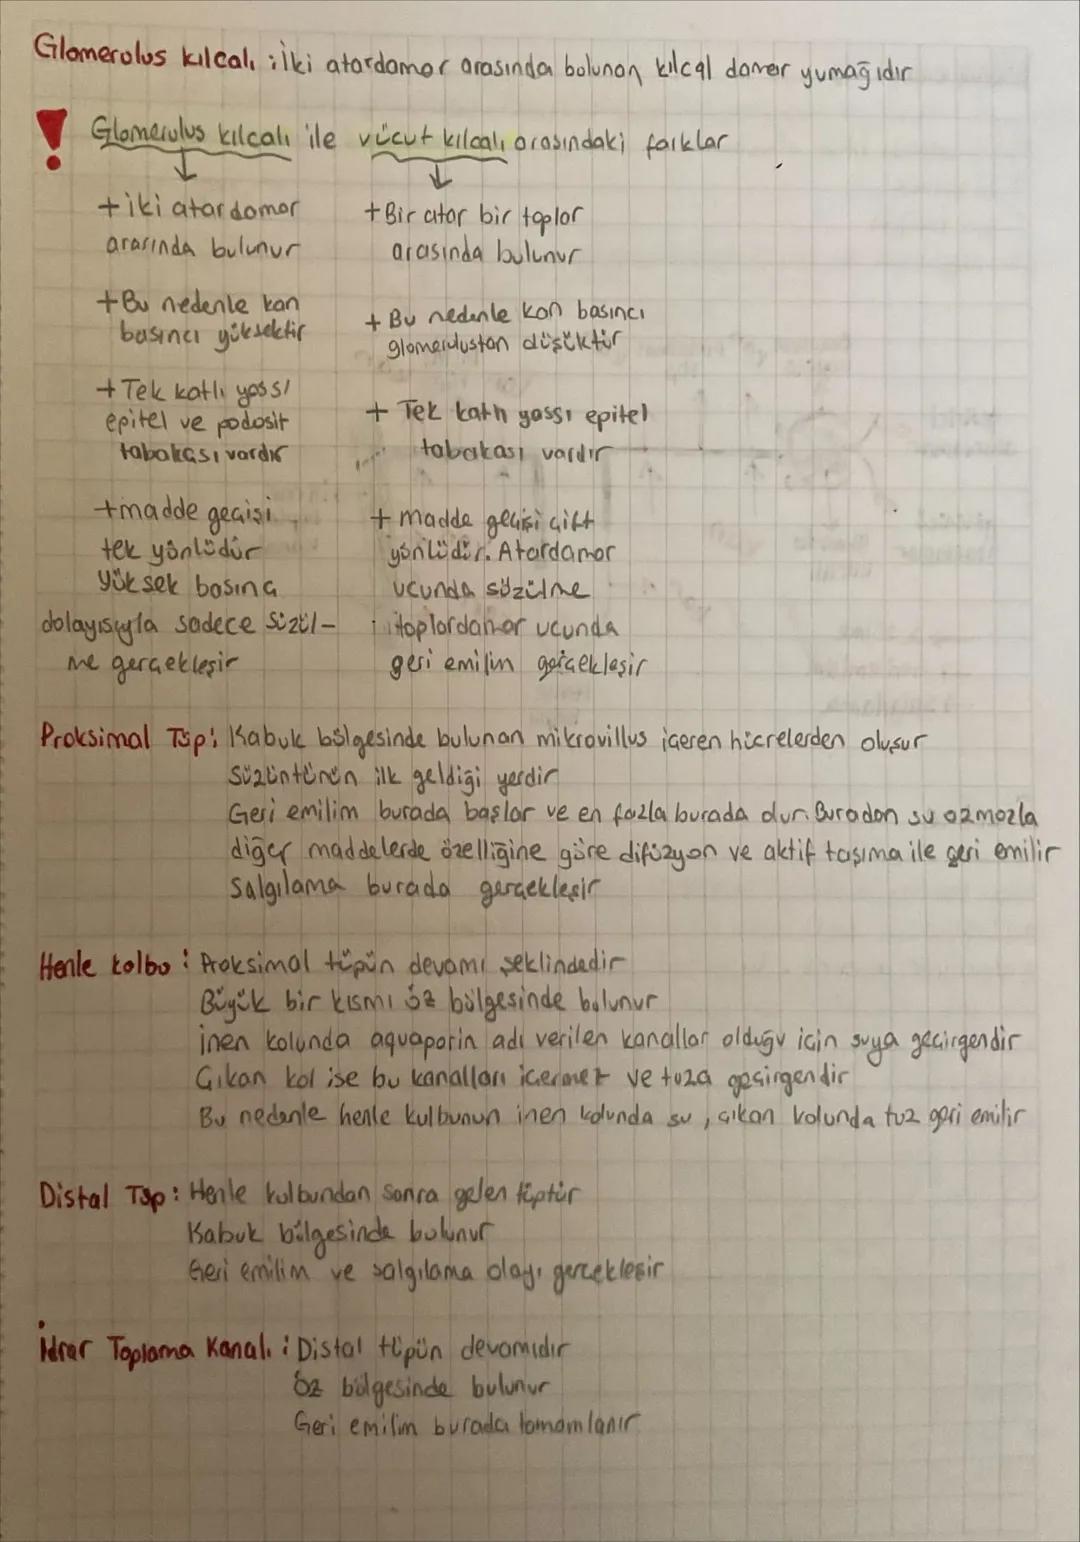 Glomerolus kılcalı : İki atardamar arasında bulunan kılcal damar yumağıdır
! Glomerulus kılcalı ile vücut kılcalı arasındaki farklar
+ iki atardamar
arasında bulunur
+ Bu nedenle kan
basıncı yüksektir
+ Tek katlı yassı
epitel ve podosit
tabakası vardır
+ madde geçişi
tek yönlüdür
yüksek basınç
dolayısıyla sadece süzül-
me gerçekleşir
+ Bir atar bir toplar
arasında bulunur
+ Bu nedenle kan basıncı
glomerulustan düşüktür
+ Tek katlı yassı epitel
tabakası vardır
+ madde geçişi çift
yönlüdür. Atardamar
ucunda süzülme
toplardamar ucunda
geri emilim gerçekleşir
Proksimal Tüp: Kabuk bölgesinde bulunan mikrovillus içeren hücrelerden oluşur
Süzüntünün ilk geldiği yerdir
Geri emilim burada başlar ve en fazla burada olur. Buradan su ozmozla
diğer maddelerde özelliğine göre difüzyon ve aktif taşıma ile geri emilir
Salgılama burada gerçekleşir
Henle kolbu : Proksimal tüpün devamı şeklindedir
Büyük bir kısmı öz bölgesinde bulunur
inen kolunda aquaporin adı verilen kanallar olduğu için suya geçirgendir
Çıkan kol ise bu kanalları içermez ve tuza geçirgendir
Bu nedenle henle kulbunun inen kolunda su , çıkan kolunda tuz geri emilir
Distal Tüp : Henle kulbundan sonra gelen tüptür
Kabuk bölgesinde bulunur
Geri emilim ve salgılama olayı gerçekleşir
İdrar Toplama Kanalı : Distal tüpün devamıdır
Öz bölgesinde bulunur
Geri emilim burada tamamlanır